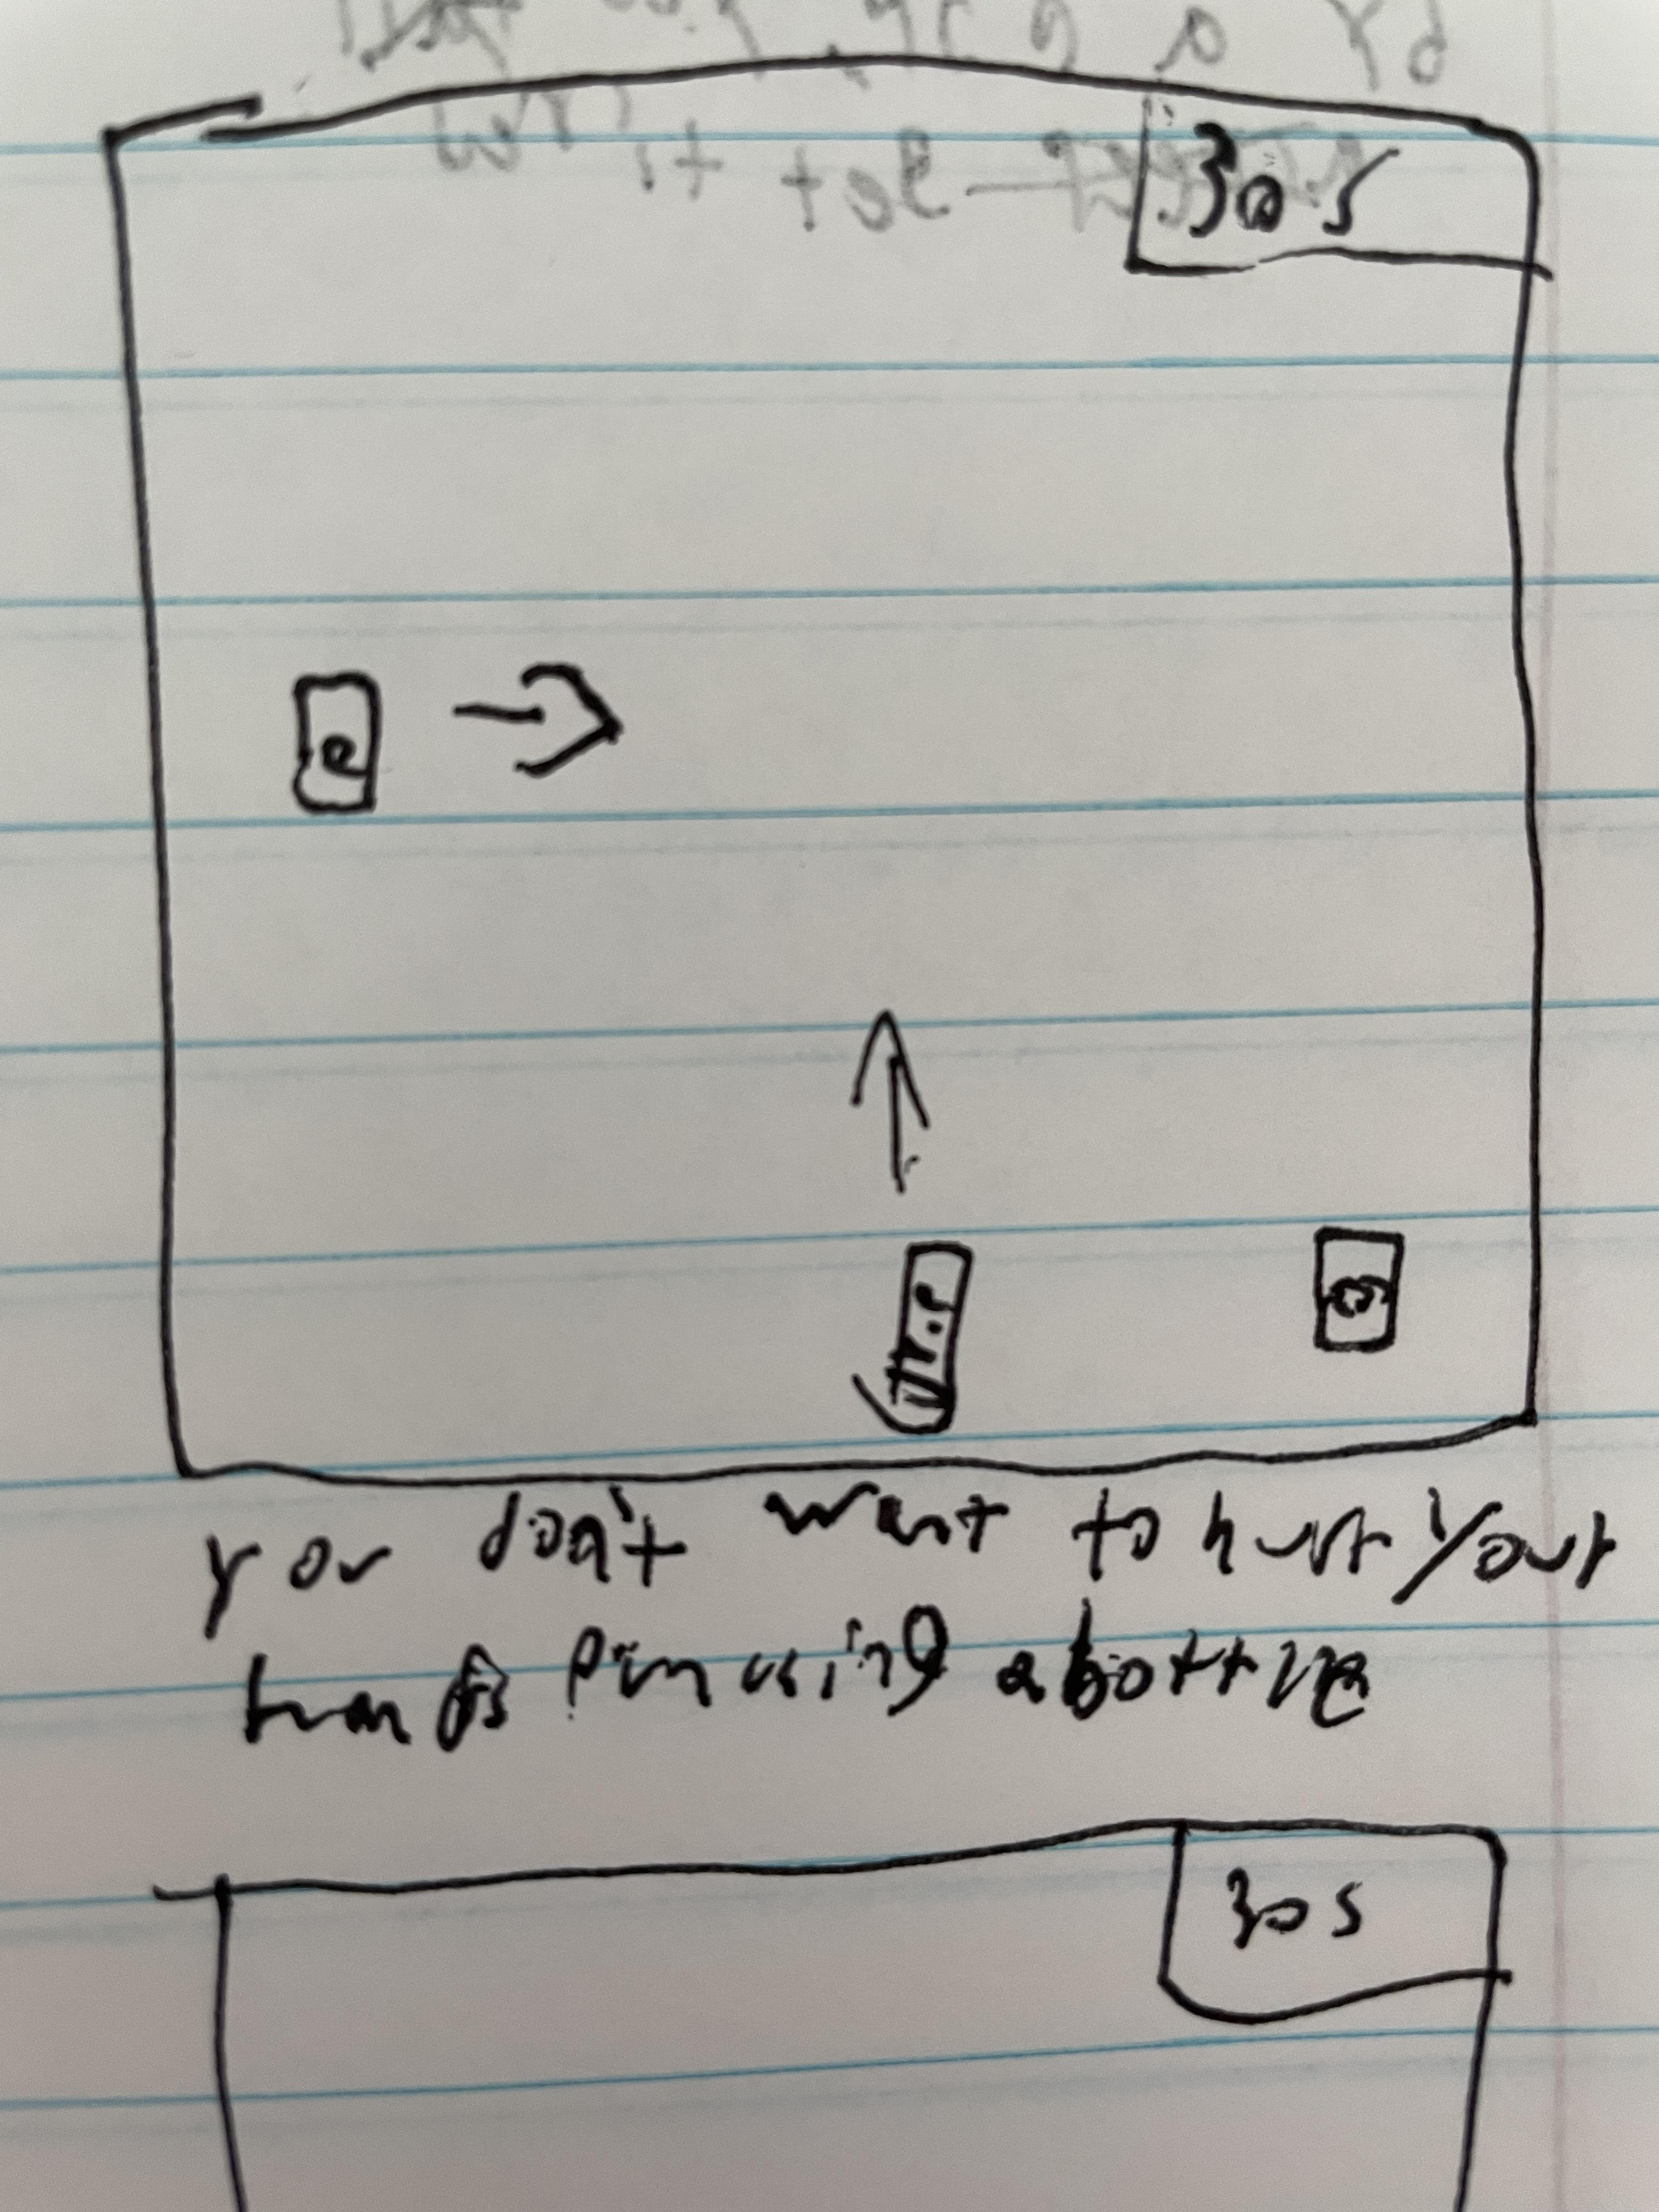 30 S
e
you don't want to hurt your
hands I'm using a bottle
30 S